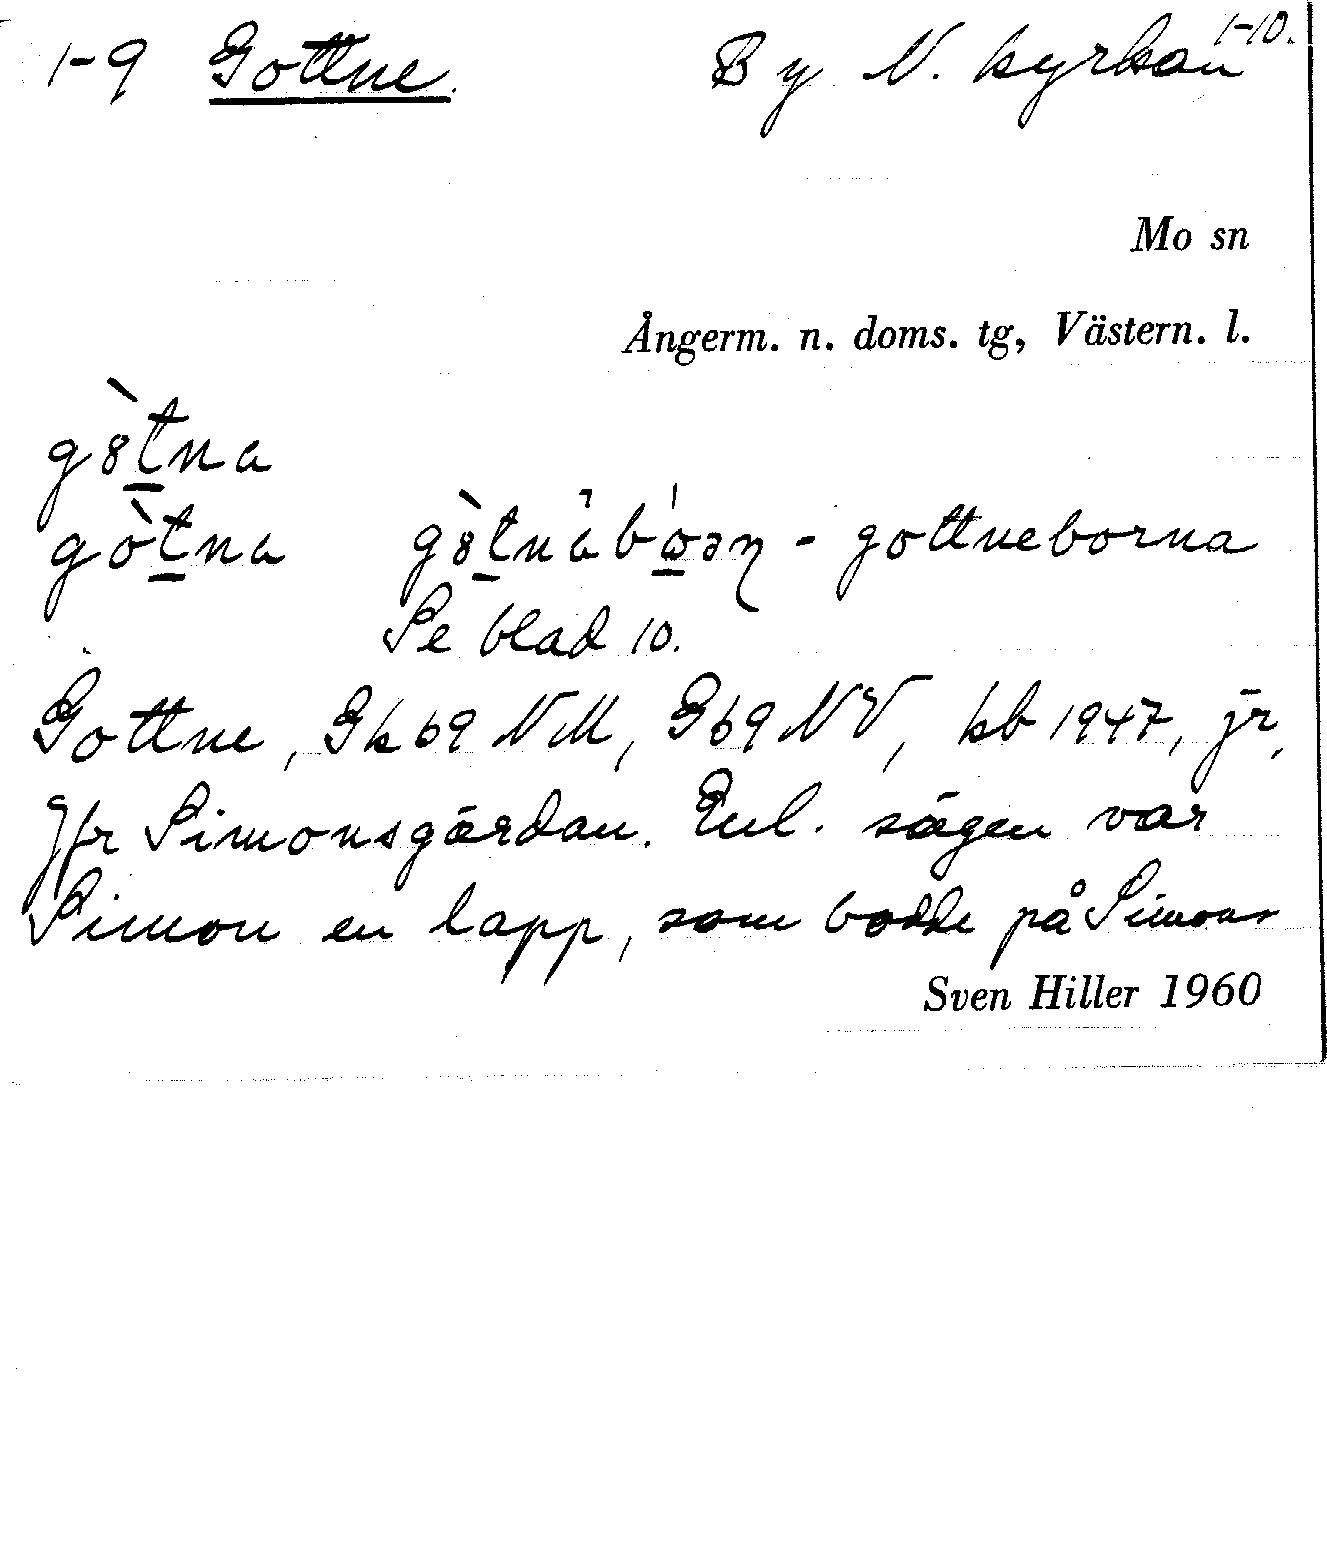 1-10.
1-9 Gottne. By N. kyrkan
Mo sn
Ångerm. n. doms. tg, Västern. l.
gòt̲na
gòt̲na - gottneborna
Se blad 10.
Gottne, Gk 69 NM, E 69 NV, kb 1947, jr,
Jfr Simonsgärdan. Enl. sägen var
Simon en lapp, som bodde på Simons
Sven Hiller 1960